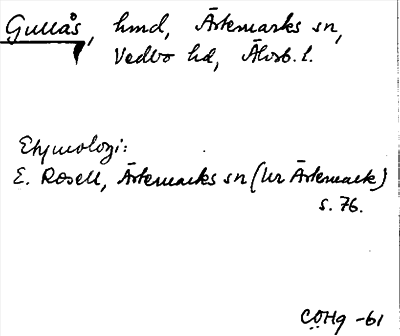 Gullås, hmd, Ärtemarks sn,
Vedbo hd, Älvsb. l.
Etymologi:
E. Rosell, Ärtemarks sn (ur Ärtemark)
s. 76.
CÖHg -61